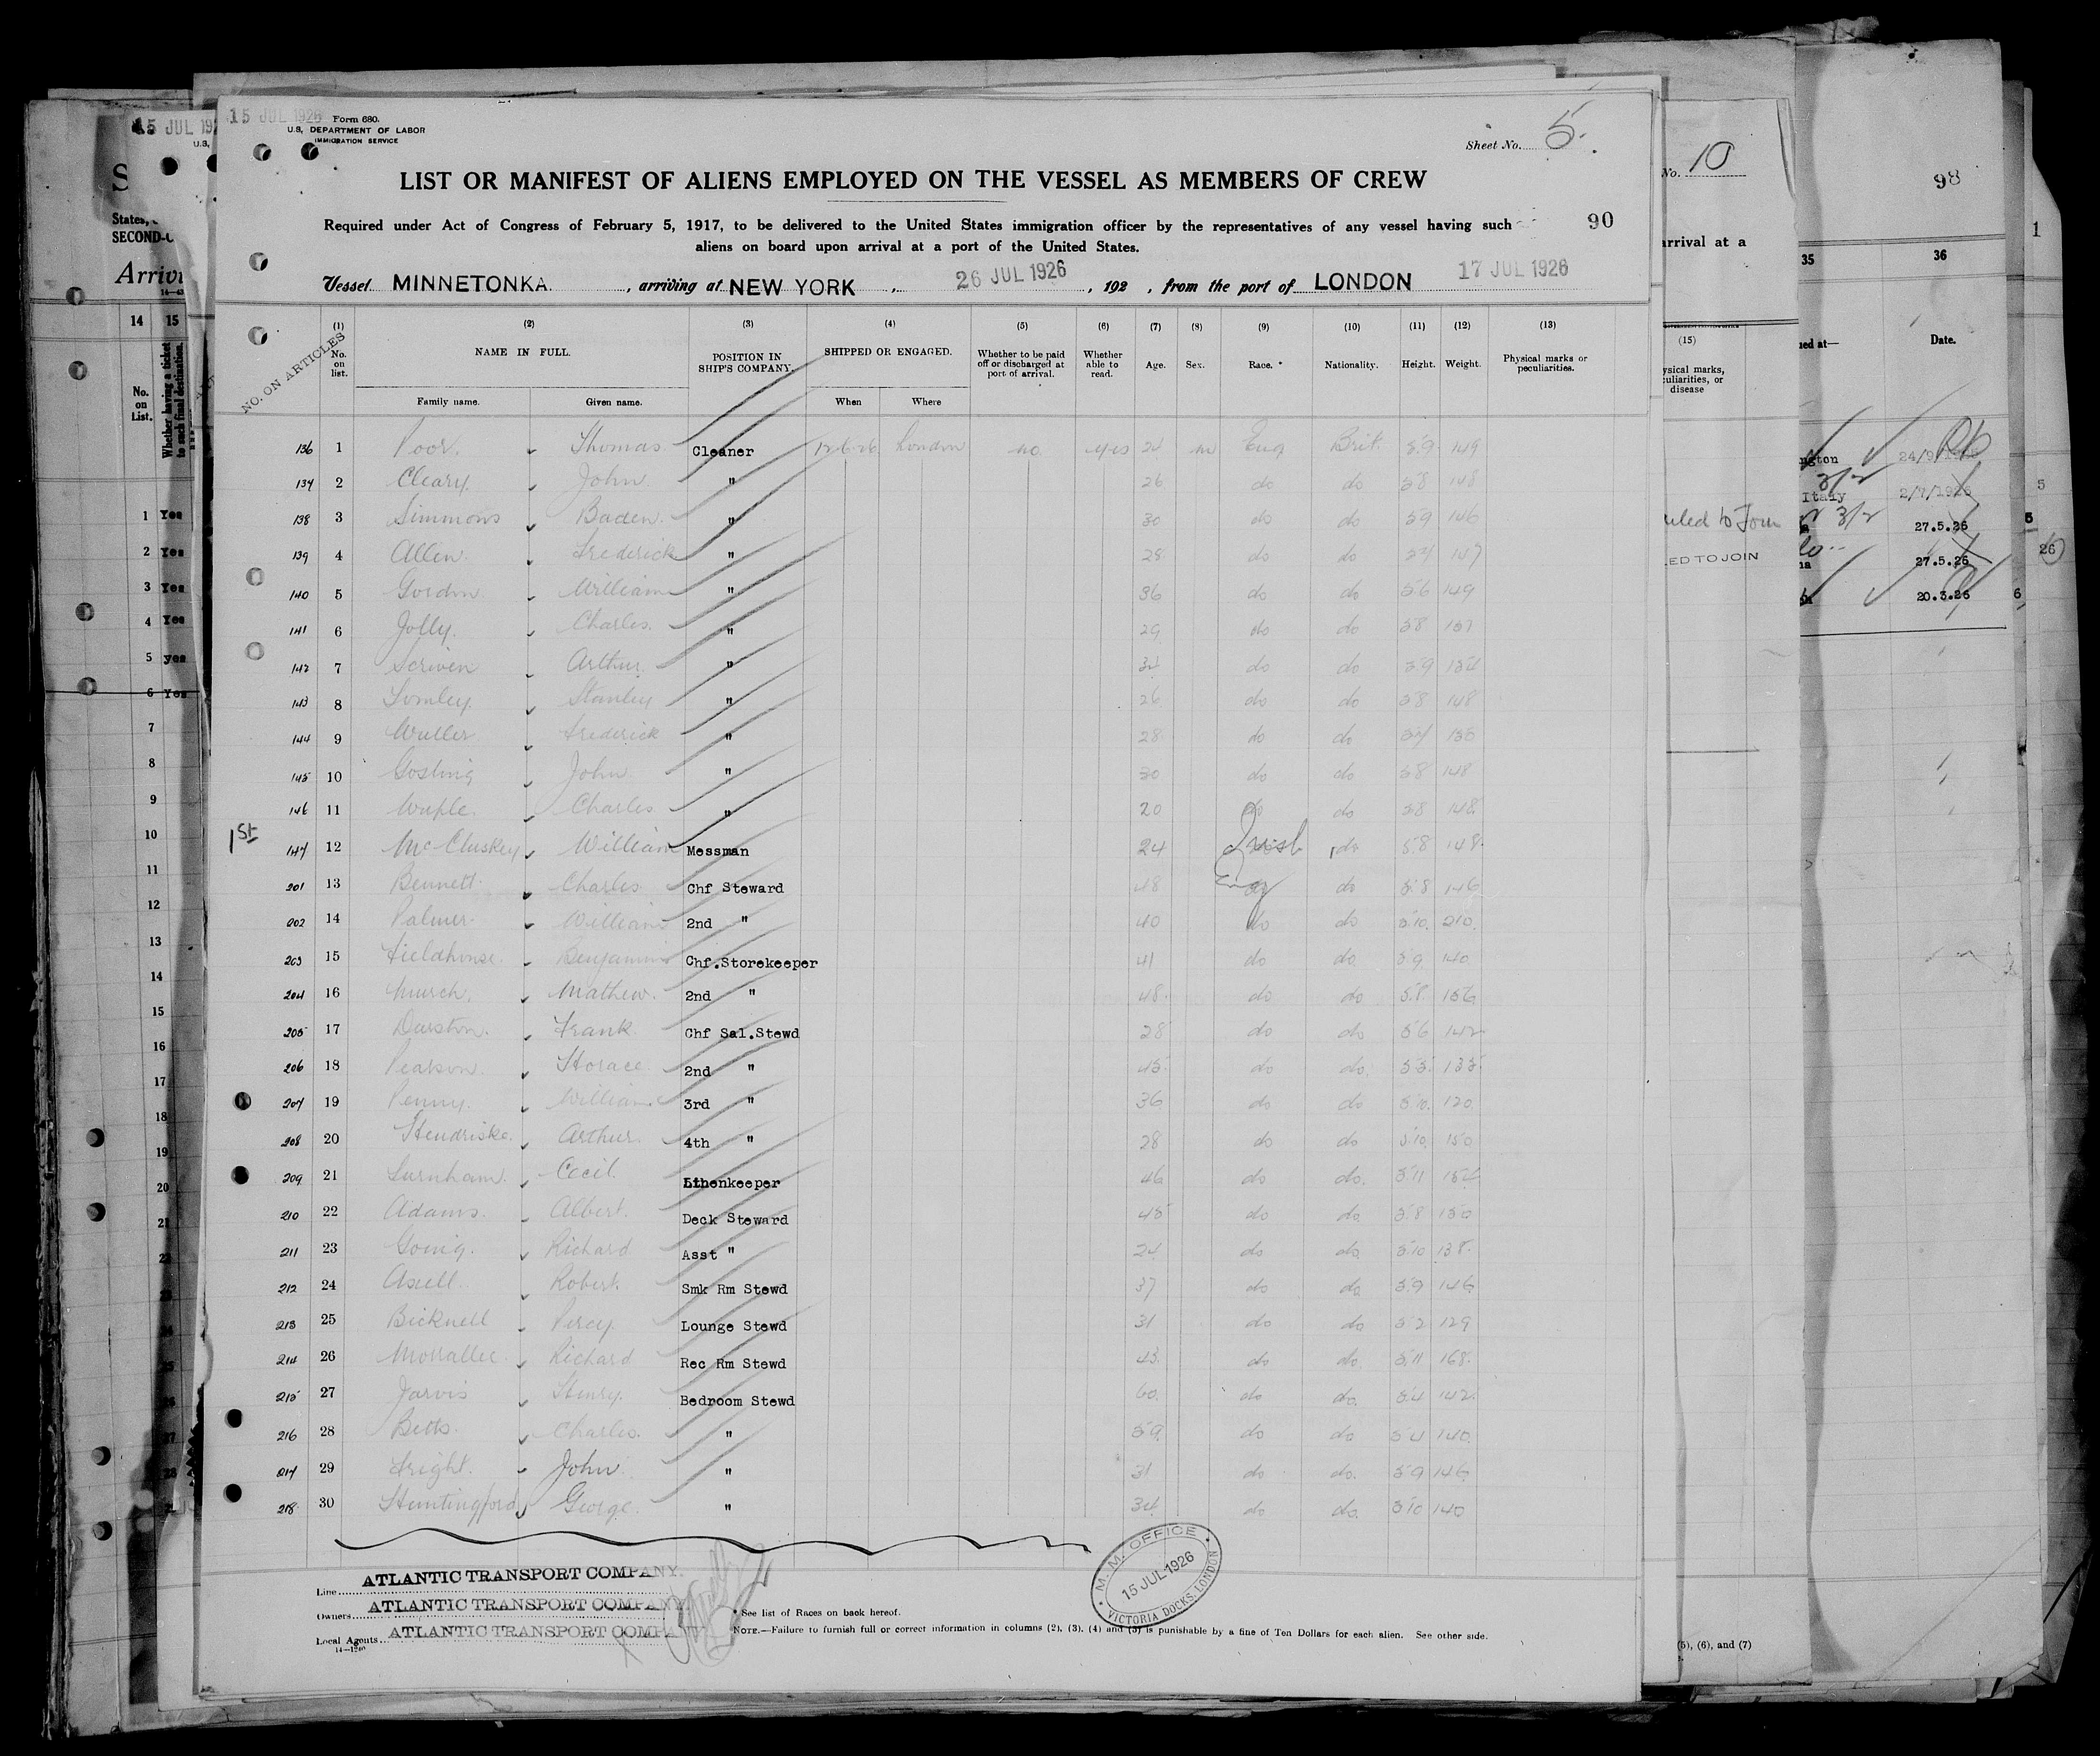 15 JUL 1926
Form 680.
U.S. DEPARTMENT OF LABOR
IMMIGRATION SERVICE
Sheet No. 5.
LIST OR MANIFEST OF ALIENS EMPLOYED ON THE VESSEL AS MEMBERS OF CREW
Required under Act of Congress of February 5, 1917, to be delivered to the United States immigration officer by the representatives of any vessel having such
aliens on board upon arrival at a port of the United States.
90
Vessel MINNETONKA. , arriving at NEW YORK , 26 JUL 1926 , 192 , from the port of LONDON 17 JUL 1926
NO. ON ARTICLES
(1) (2) (3) (4) (5) (6) (7) (8) (9) (10) (11) (12) (13)
No. on list. NAME IN FULL. POSITION IN SHIP'S COMPANY. SHIPPED OR ENGAGED. Whether to be paid off or discharged at port of arrival. Whether able to read. Age. Sex. Race.* Nationality. Height. Weight. Physical marks or peculiarities.
Family name. Given name. When Where
136 1 Poor. Thomas Cleaner 12.6.26 London no. yes 24 m Eng Brit. 5.9 149
137 2 Cleary. John. " 26 do do 5.8 148
138 3 Simmons Baden. " 30 do do 5.9 146
139 4 Allen. Frederick " 28 do do 5.7 147
140 5 Gordon William " 36 do do 5.6 149
141 6 Jolly. Charles. " 29 do do 5.8 157
142 7 Scriven Arthur. " 34 do do 5.9 154
143 8 Stanley " 26 do do 5.8 148
144 9 Frederick " 28 do do 5.7
145 10 Gosling John. " 30 do do 5.8 148
146 11 Charles. " 20 do do 5.8 148
1st
147 12 McCluskey William Messman 24 Irish do 5.8 148
201 13 Bennett Charles Chf Steward 48 Eng do 5.8 146
202 14 Palmer William 2nd " 40 do do 5.10 210
203 15 Fieldhouse. Benjamin Chf.Storekeeper 41 do do 5.9 140
204 16 Murch. Mathew. 2nd " 48 do do 5.8 156
205 17 Durston. Frank Chf Sal.Stewd 28 do do 5.6 142
206 18 Pearson. Horace. 2nd " 45 do do. 5.5. 135
207 19 Penny. William. 3rd " 36 do do 5.10. 120
208 20 Arthur. 4th " 28 do do 5.10. 150
209 21 Cecil. Linenkeeper 46 do do. 5.11 154
210 22 Adams. Albert. Deck Steward 45 do do 5.8 150
211 23 Richard Asst " 24 do do 5.10 138
212 24 Axell Robert. Smk Rm Stewd 37 do do 5.9 146
213 25 Bicknell Percy. Lounge Stewd 31 do do 5.2 129
214 26 Richard Rec Rm Stewd 43. do do 5.11 168.
215 27 Jarvis Henry. Bedroom Stewd 60. do do. 5.4 142
216 28 Betts. Charles. " 59 do do 5.4 140
217 29 John. " 31 do do. 5.9 146
218 30 Huntingford George. " 34 do do. 5.10 140
Line ATLANTIC TRANSPORT COMPANY.
Owners ATLANTIC TRANSPORT COMPANY.
Local Agents ATLANTIC TRANSPORT COMPANY
14—1240
M.M. OFFICE
15 JUL 1926
VICTORIA DOCKS, LONDON
* See list of Races on back hereof.
NOTE.—Failure to furnish full or correct information in columns (2), (3), (4) and (5) is punishable by a fine of Ten Dollars for each alien. See other side.
15 JUL 192
U.S.
States,
SECOND-C
Arriv
14 15
No. on List.
Whether having a ticket to such final destination.
1 Yes
2 Yes
3 Yes
4 Yes
5 yes
6 Yes
7
8
9
10
11
12
13
14
15
16
17
18
19
20
21
No. 10
arrival at a
(15)
ysical marks,
culiarities, or
disease
ED TO JOIN
(5), (6), and (7)
98
35 36
ued at— Date.
ngton 24/9/1925
Italy 2/7/1926
27.5.26
27.5.26
20.3.26
1
5
6
26
6